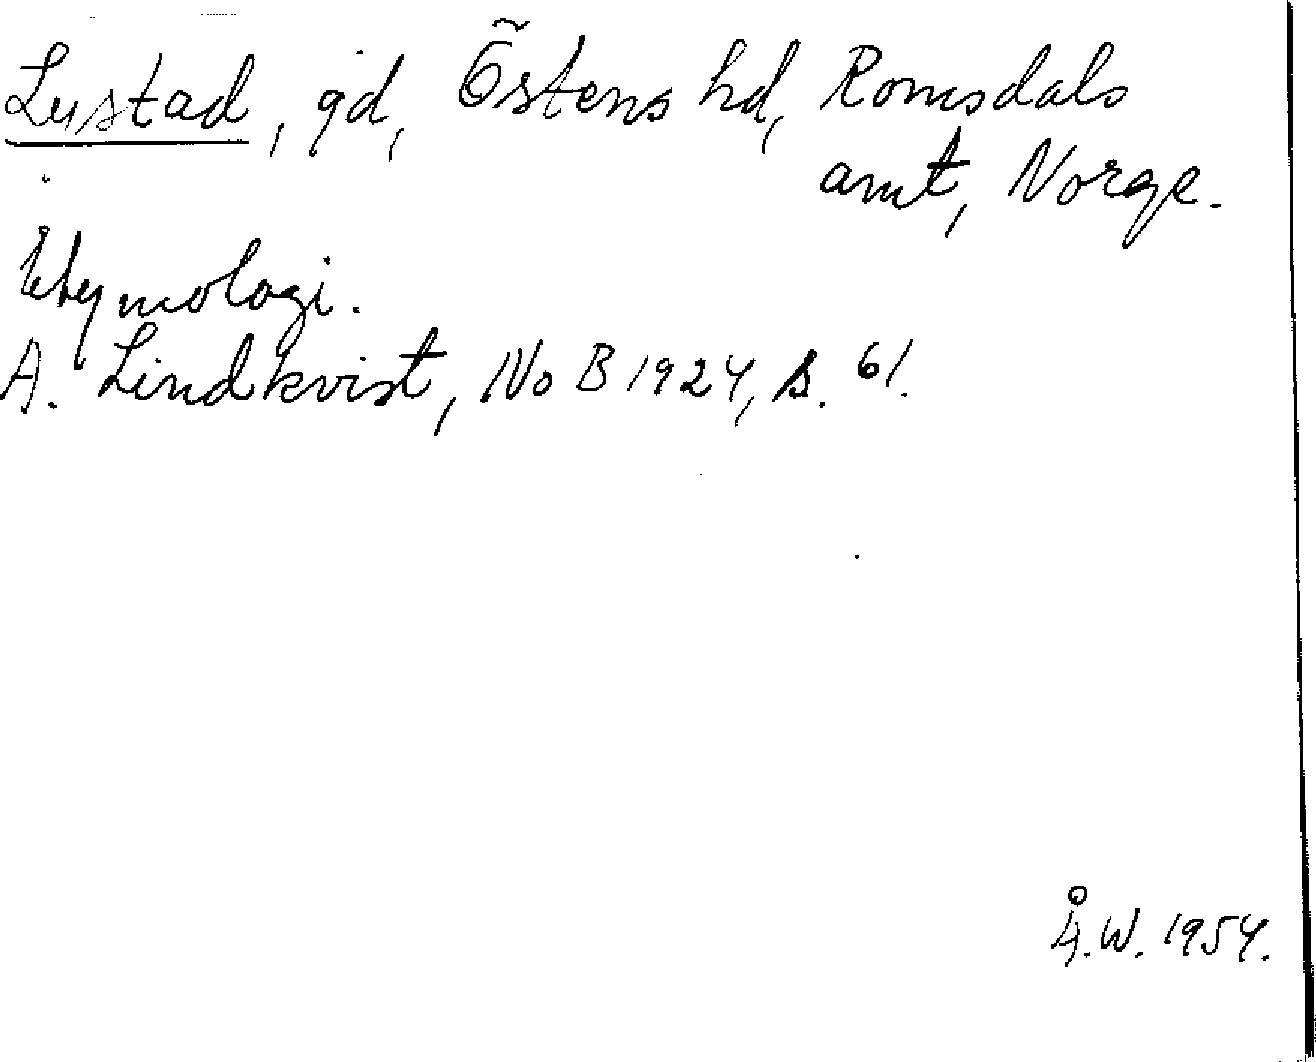 Lustad, gd, Östens hd, Romsdals
amt, Norge.
Etymologi.
A. Lindkvist, NoB 1924, s. 61.
Å.W. 1954.